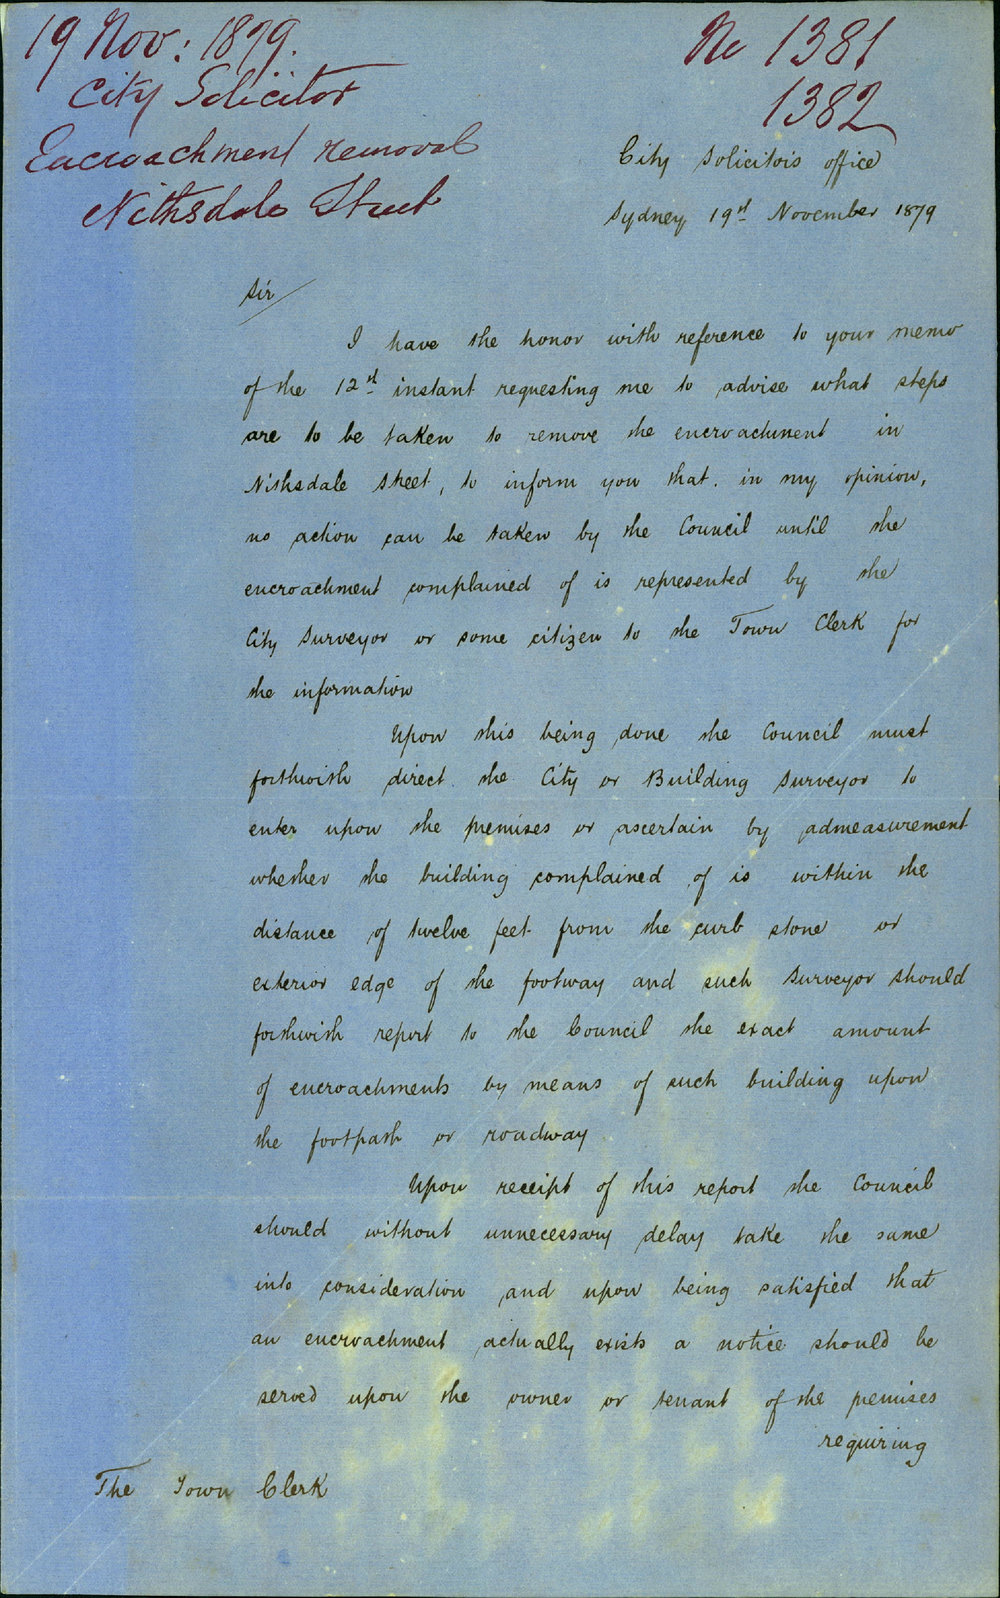 19 Nov: 1879.
City Solicitor
Encroachment removal
Nithsdale Street
No 1381
1382
City Solicitors office
Sydney 19th November 1879
Sir
I have the honor with reference to your memo
of the 12th instant requesting me to advise what steps
are to be taken to remove the encroachment in
Nithsdale Street, to inform you that. in my opinion,
no action can be taken by the Council until the
encroachment complained of is represented by the
City Surveyor or some citizen to the Town Clerk for
the information
Upon this being done the Council must
forthwith direct the City or Building Surveyor to
enter upon the premises or ascertain by admeasurement
whether the building complained of is within the
distance of twelve feet from the curb stone or
exterior edge of the footway and such Surveyor should
forthwith report to the Council the exact amount
of encroachments by means of such building upon
the footpath or roadway
Upon receipt of this report the Council
should without unnecessary delay take the same
into consideration and upon being satisfied that
an encroachment actually exists a notice should be
served upon the owner or tenant of the premises
requiring
The Town Clerk